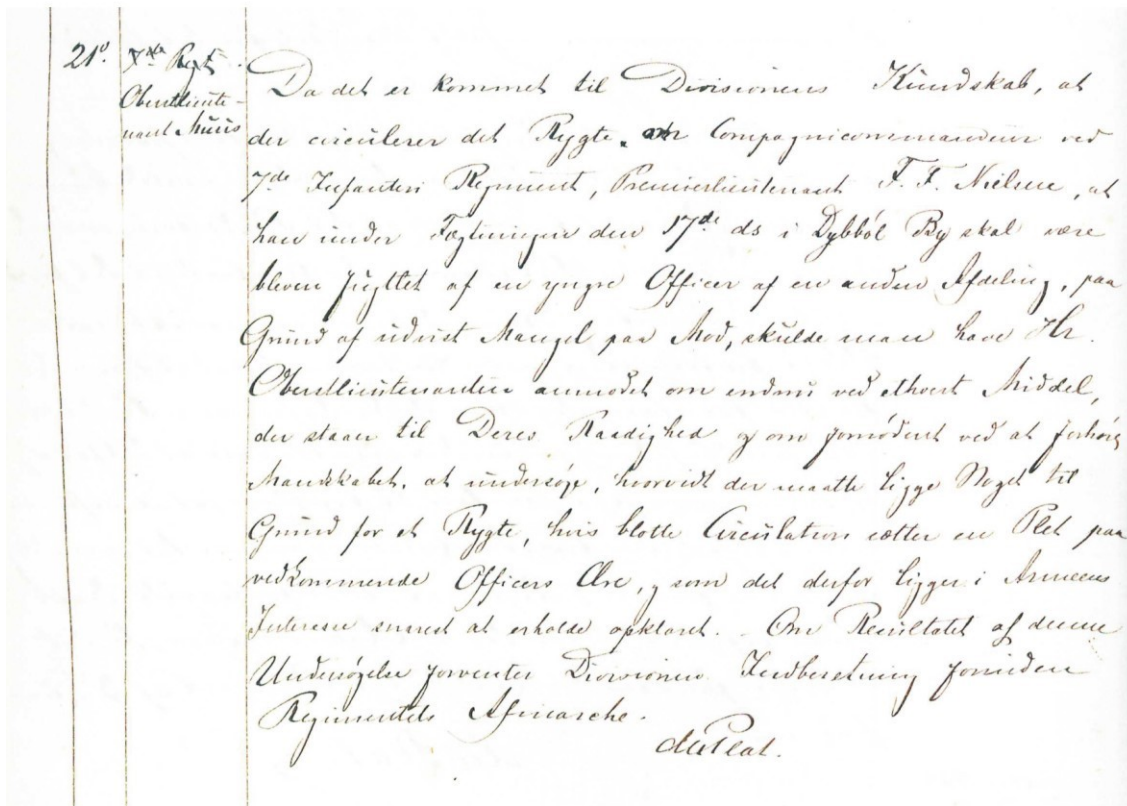 21º.
7de Regt.
Oberstlieute-
nant Muus
Da det er kommet til Divisionens Kundskab, at
der circulerer det Rygte, om Compagnicommandeur ved
7de Infanteri Regiment, Premierlieutenant F. F. Nielsen, at
han under Fægtningen den 17de ds i Dybböl By skal være
bleven flyttet af en yngre Officer af en anden Afdeling, paa
Grund af udvist Mangel paa Mod, skulde man have Hr.
Oberstlieutenanten anmodet om endnu ved ethvert Middel,
der staaer til Deres Raadighed og om fornödent ved at forhöre
Mandskabet, at undersöge, hvorvidt der maatte ligge Noget til
Grund for et Rygte, hvis blotte Circulation sætter en Plet paa
vedkommende Officers Ære, og som det derfor ligger i Armeens
Interesse snarest at erholde opklaret. - Om Resultatet af denne
Undersögelse forventer Divisionen Indberetning forinden
Regimentets Afmarche.
du Plat.